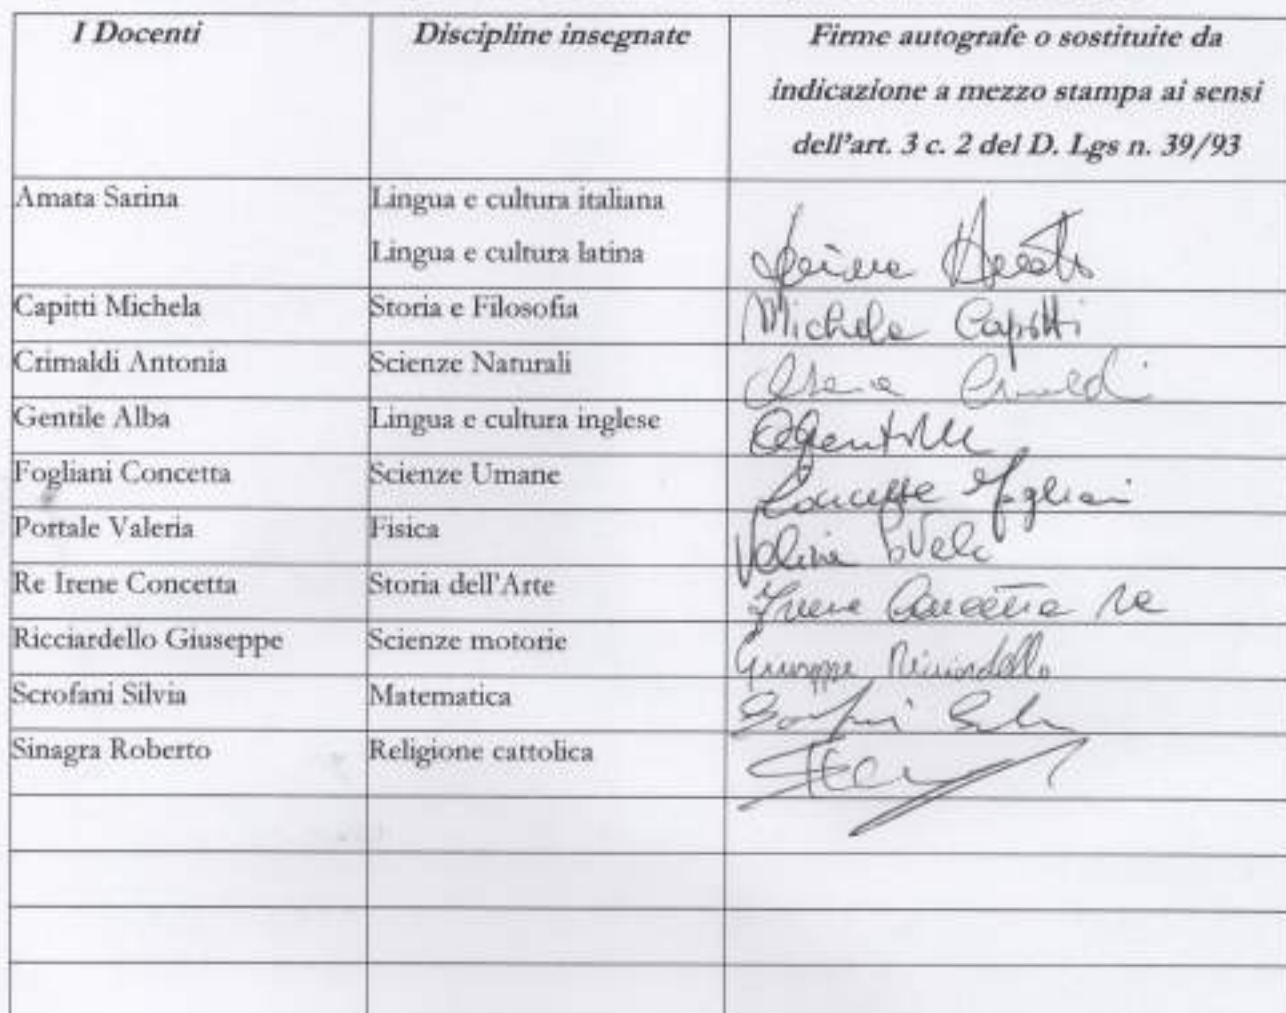 I Docenti
Discipline insegnate
Firme autografe o sostituite da
indicazione a mezzo stampa ai sensi
dell'art. 3 c. 2 del D. Lgs n. 39/93
Amata Sarina
Lingua e cultura italiana
Lingua e cultura latina
Capitti Michela
Storia e Filosofia
Michela Capitti
Crimaldi Antonia
Scienze Naturali
Gentile Alba
Lingua e cultura inglese
Fogliani Concetta
Scienze Umane
Concetta Fogliani
Portale Valeria
Fisica
Re Irene Concetta
Storia dell'Arte
Irene Concetta Re
Ricciardello Giuseppe
Scienze motorie
Giuseppe Ricciardello
Scrofani Silvia
Matematica
Sinagra Roberto
Religione cattolica